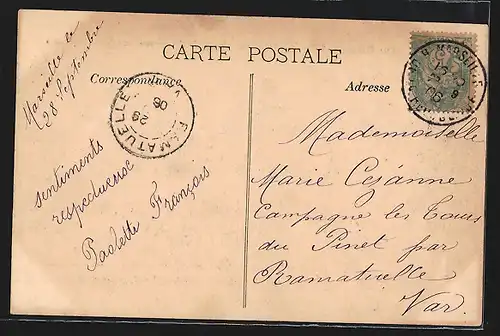 CARTE POSTALE
Correspondance
Adresse
Marseille le
28 Septembre
sentiments
respectueuse
Paolette François
RAMATUELLE
29
06
MARSEILLE
06
Mademoiselle
Marie Cézanne
Campagne les Tours
du Pinet par
Ramatuelle
Var.